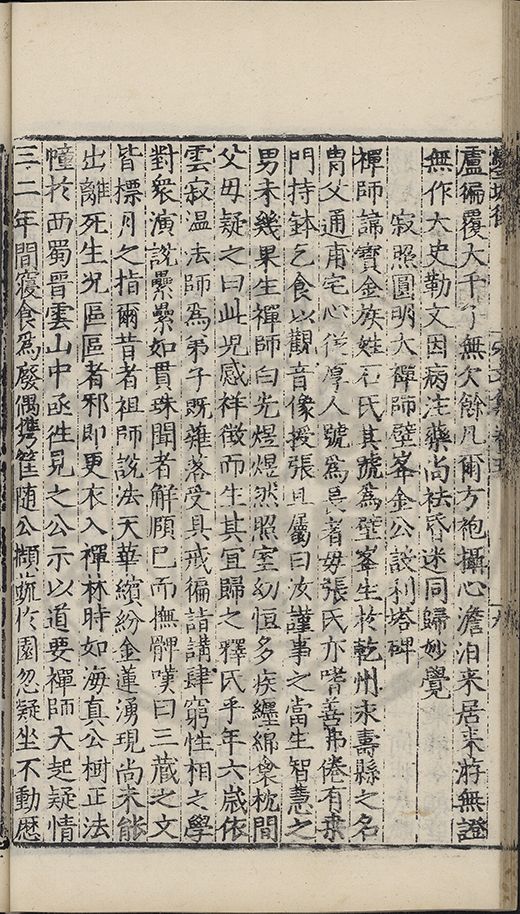 盧徧覆大千了無欠餘凡爾方袍攝心澹泊来居来游無證
無作大史勒文因病注藥尚袪昏迷同歸妙覺
寂照圓明大禪師壁峯金公設利塔碑
禪師諱寶金族姓石氏其號為壁峯生於乾州永壽縣之名
胄父通甫宅心從厚人號為長者毋張氏亦嗜善弗倦有桒
門持鉢乞食以觀音像授張且屬曰汝謹事之當生智慧之
男未幾果生禪師白光煜煜然照室幼恒多疾纏綿枲枕間
父毋疑之曰此児感祥徵而生其冝歸之釋氏乎年六歳依
雲寂温法師為弟子既薙落受具戒徧詣講肆窮性相之學
對衆演說纍纍如貫珠聞者解頤已而撫髀嘆曰三藏之文
皆標月之指爾昔者祖師說法天華繽紛金蓮湧現尚未能
出離死生况區區者邪即更衣入禪林時如海真公樹正法
幢於西蜀晉雲山中亟徃見之公示以道要禪師大起疑情
三二年間寢食為廢偶擕筐随公擷蔬於園忽疑坐不動歴